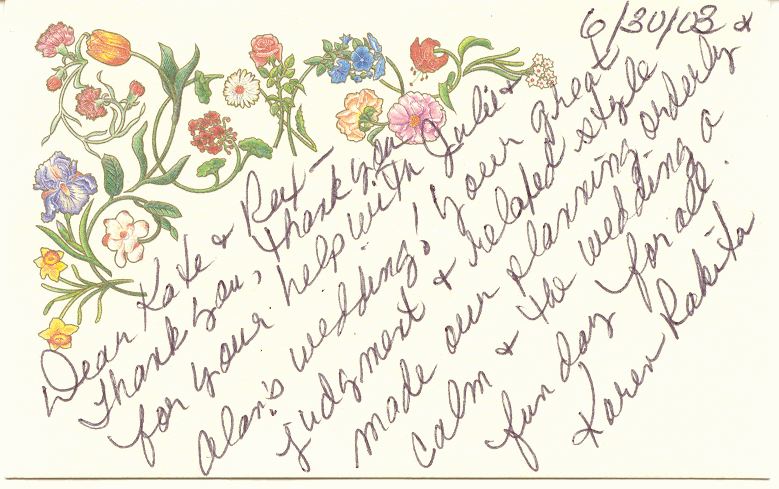 6/30/03
Dear Kate & Rex –
Thank you, thank you
for your help with Julie &
Alan's wedding! Your great
judgment & relaxed style
made our planning orderly &
calm & the wedding a
fun day for all.
Karen Rakita